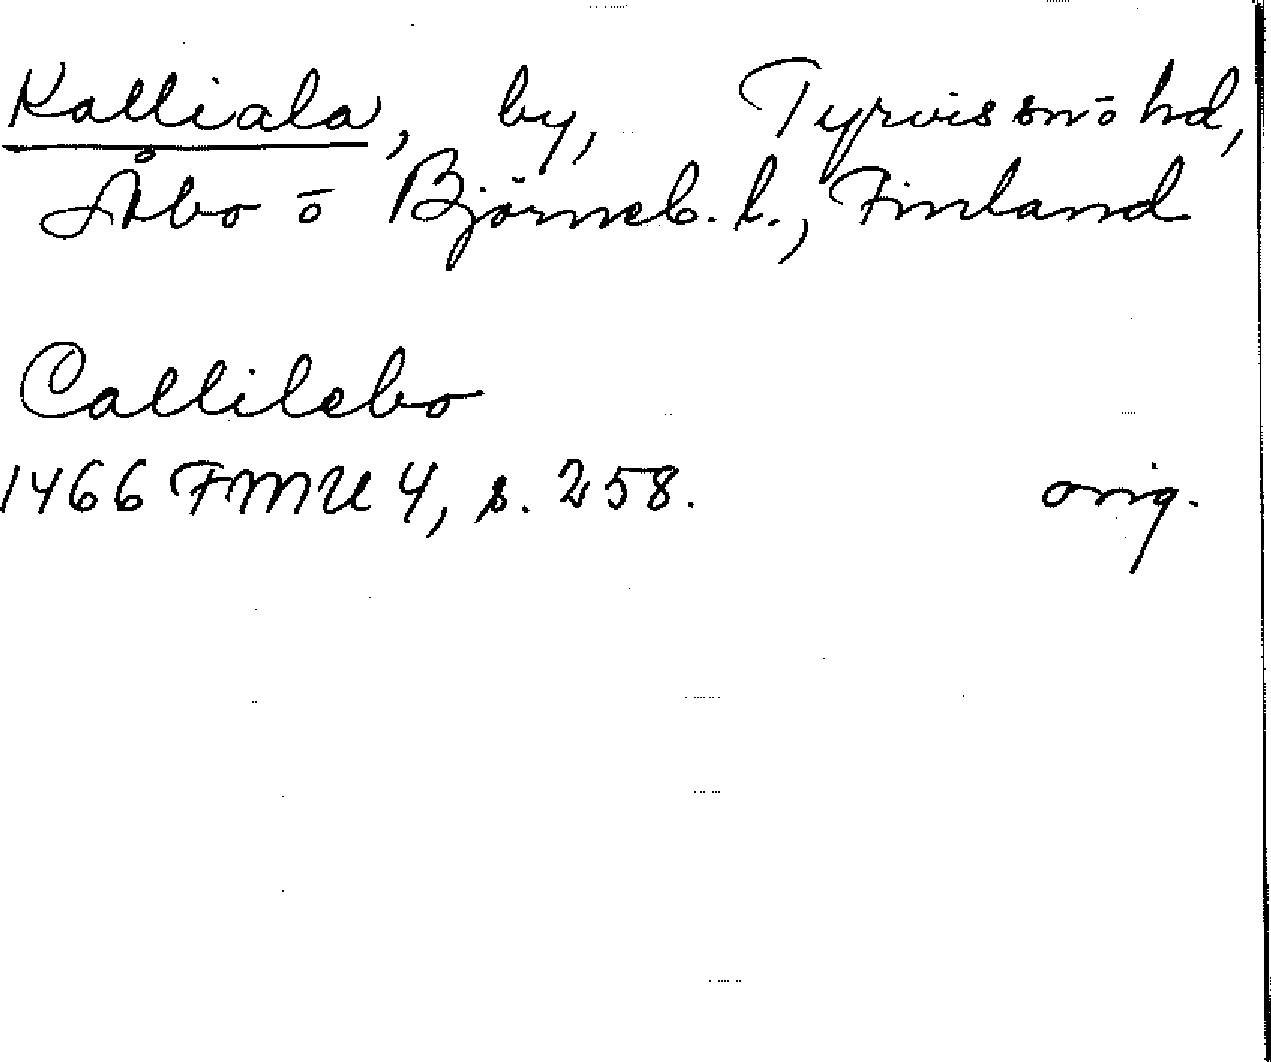 Kalliala, by, Tyrvis sn ō hd,
Åbo ō Björneb. l., Finland
Callilebo
1466 FMU 4, s. 258. orig.